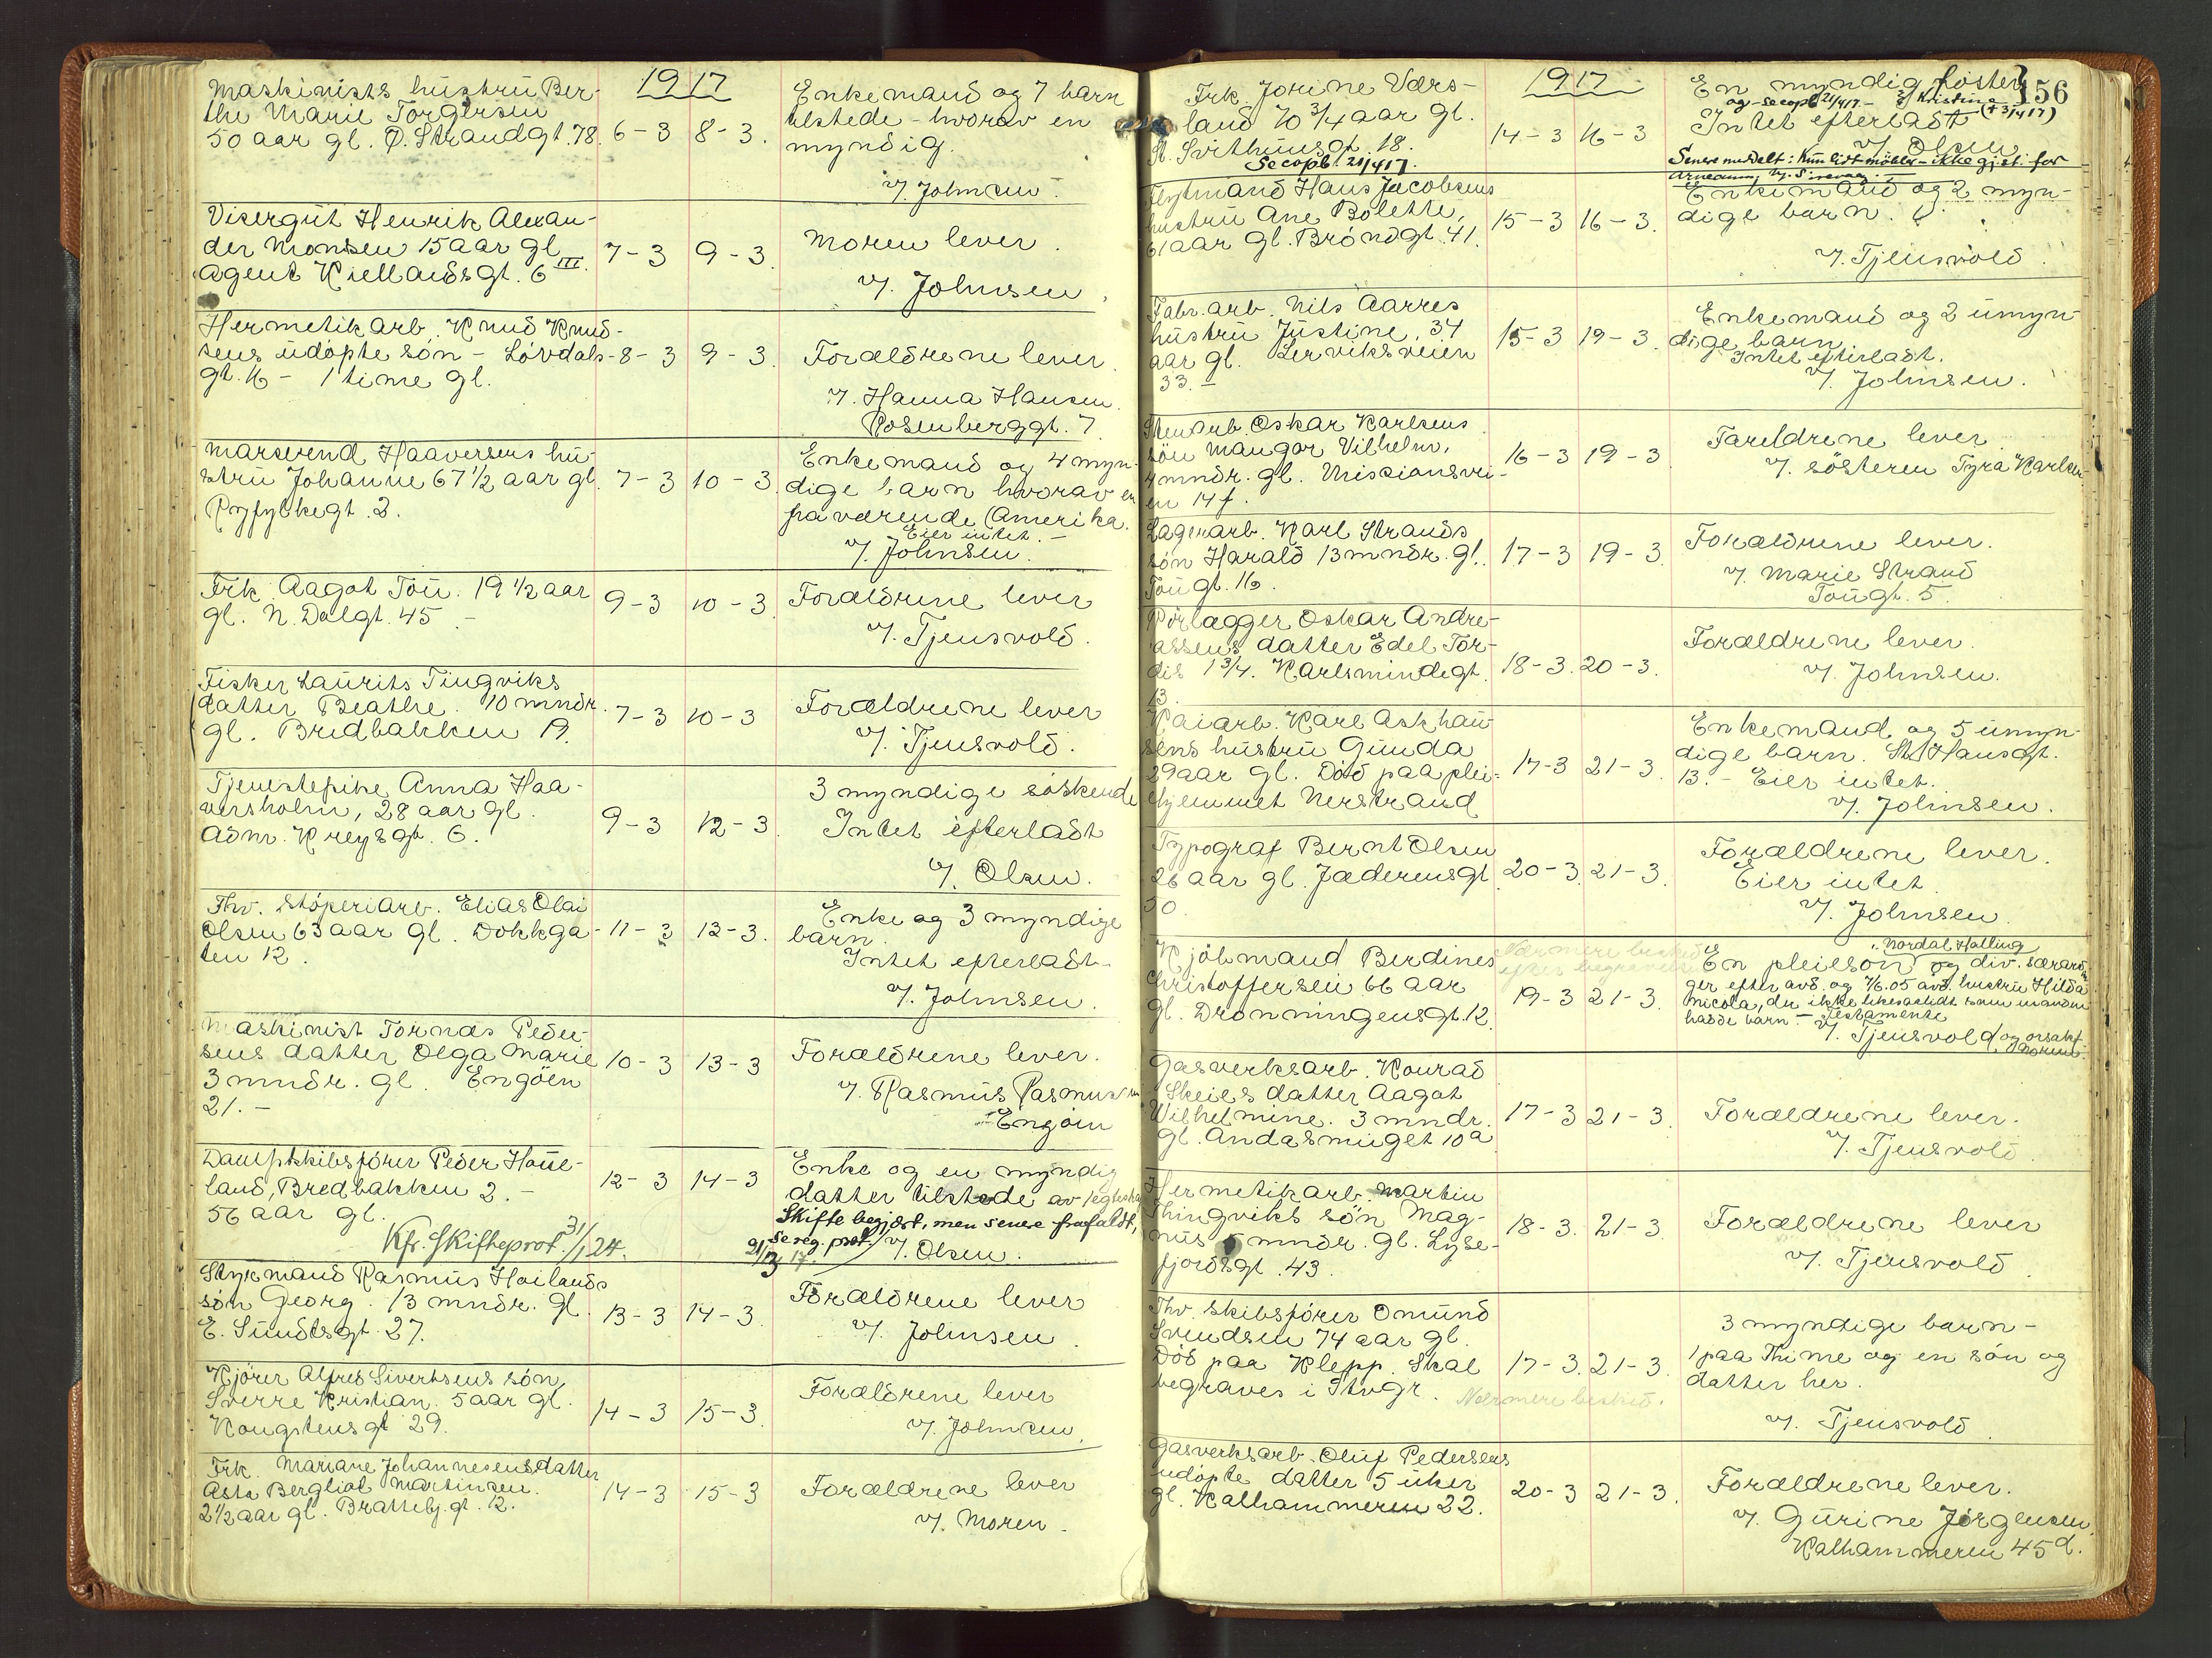 Maskinists hustru Ber-
the Marie Torgersen
50 aar gl. Ø. Strandgt. 78.
1917
6-3 8-3.
Enkemand og 7 barn
tilstede - hvorav en
myndig.
v/. Johnsen.
Visergut Henrik Alexan-
der Monsen 15 aar gl
Agent Kiellandsgt. 6 III.
7-3 9-3.
Moren lever.
v/. Johnsen.
Hermetikarb. Knud Knud-
sens udøpte søn - Løvdals-
gt. 16 - 1 time gl.
8-3 9-3.
Forældrene lever.
v/. Hanna Hansen.
Rosenberggt. 7
Haaversens hu-
stru Johanne 67 1/2 aar gl.
Ryfylkegt. 2.
7-3 10-3.
Enkemand og 4 myn-
dige barn hvorav en
fraværende (Amerika.
Eier intet.-
v/. Johnsen.
Frk. Aagot Tou. 19 1/2 aar
gl. N. Dalgt. 45.-
9-3 10-3.
Forældrene lever
v/. Tjensvold.
Fisker Laurits Tingviks
datter Beathe. 10 mndr.
gl. Bredbakken 19.
7-3 10-3
Forældrene lever
v/. Tjensvold.
Tjenestepike Anna Haa-
versholm, 28 aar gl.
Adm. Kreysgt. 6.
9-3 12-3.
3 myndige søskende
Intet efterladt
v/. Olsen.
Fhv. støperiarb. Elias Olai
Olsen 63 aar gl. Dokkga-
ten 12.
11-3 12-3.
Enke og 3 myndige
barn.
Intet efterladt-
v/. Johnsen.
Maskinist Tornæs Peder-
sens datter Olga Marie
3 mndr. gl. Engøen
21.-
10-3 13-3
Forældrene lever.
v/. Rasmus Rasmussen
Engøen
Dampskibsfører Peder Haue-
land, Bredbakken 2.-
56 aar gl.
Kfr. Skifteprot. 31/1 24.
12-3 14-3
Enke og en myndig
datter tilstede av
Skifte begjært, men senere frafaldt,
se reg. prot.
21/3 17. v/. Olsen.
Styrmand Rasmus Hoilands
søn Georg. 13 mndr. gl.
E. Sundtsgt. 27.
13-3 14-3.
Forældrene lever
v/. Johnsen.
Kjører Alfred Sivertsens søn
Sverre Kristian. 5 aar gl.
Kongstensgt 29.
14-3 15-3.
Forældrene lever
v/. Johnsen.
Frk. Mariane Johannesens datter
Asta Bergliot Martinsen.
2 1/2 aar gl. Brattebj.gt. 12.
14-3 15-3
Forældrene lever
v/. Moren.
156
Frk. Jorine Værs-
land 70 3/4 aar gl.
St. Svithunsgt. 18.
Se copb. 21/4 17.
1917
14-3 16-3
En myndig søster
og - se copb 21/4 17 - Kristine (+ 3/4 17)
Intet efterladt
v/. Olsen
Senere meddelt: Kun lidt møbler - ikke gjst. for
arvedom, v/. Sirevaag.
Fløtmand Hans Jacobsens
hustru Ane Bolette,
61 aar gl. Brøndgt. 41.
15-3 16-3.
Enkemand og 2 myn-
dige barn.
v/. Tjensvold.
Fabr. arb. Nils Aarres
hustru Justine. 34
aar gl. Lerviksveien
33.-
15-3 19-3.
Enkemand og 2 umyn-
dige barn.
Intet efterladt.
v/. Johnsen.
Stenarb. Oskar Karlsens
søn Mangor Vilhelm,
4 mndr. gl. Missionsvei-
en 14 f.
16-3 19-3
Forældrene lever
v/. søsteren Tyra Karlsen
Lagerarb. Karl Strands
søn Harald 13 mndr. gl.
Tougt. 16.
17-3 19-3.
Forældrene lever.
v/. Marie Strand
Tougt. 5.
Rørlægger Oskar Andre-
assens datter Edel Tor-
dis 1 3/4. Karlsmindegt.
13.
18-3. 20-3.
Forældrene lever.
v/. Johnsen.
Kaiarb. Karl Askhau-
sens hustru Gunda
29 aar gl. Død paa plei-
hjemmet Nerstrand
17-3 21-3.
Enkemand og 5 umyn-
dige barn. St. Hansgt.
13. - Eier intet.
v/. Johnsen.
Typograf Bernt Olsen
26 aar gl. Jæderensgt
50.
20-3. 21-3.
Forældrene lever.
Eier intet.
v/. Johnsen.
Kjøbmand Berdines
Christoffersen 66 aar
gl. Dronningensgt. 12.
Nærmere besked
efter begravelse
19-3 21-3.
Nordal Halling
En pleiesøn og div. særarvin-
ger efter avd. og 7/6.05 avd. hustru Hilda
Nicola, der ikke likesaalidt som manden
hadde barn. - Testamente
v/. Tjensvold og
Gasverksarb. Konrad
Skeies datter Aagot
Wilhelmine. 3 mndr.
gl. Andasmuget 10a
17-3 21-3.
Forældrene lever.
v/. Tjensvold.
Hermetikarb. Martin
Thingviks søn Mag-
nus 5 mndr. gl. Lyse-
fjordsgt. 43.
18-3. 21-3.
Forældrene lever
v/. Tjensvold.
Fhv. skibsfører Omund
Svendsen 74 aar gl.
Død paa Klepp. Skal
begraves i Stvgr. Nærmere besked.
17-3. 21-3.
3 myndige barn -
1 paa Thime og en søn og
datter her.
v/. Tjensvold.
Gasverksarb. Oluf Pedersens
udøpte datter 5 uker
gl. Kalhammeren 22.
20-3 21-3.
Forældrene lever.
v/. Gurine Jørgensen.
Kalhammeren 45 d.